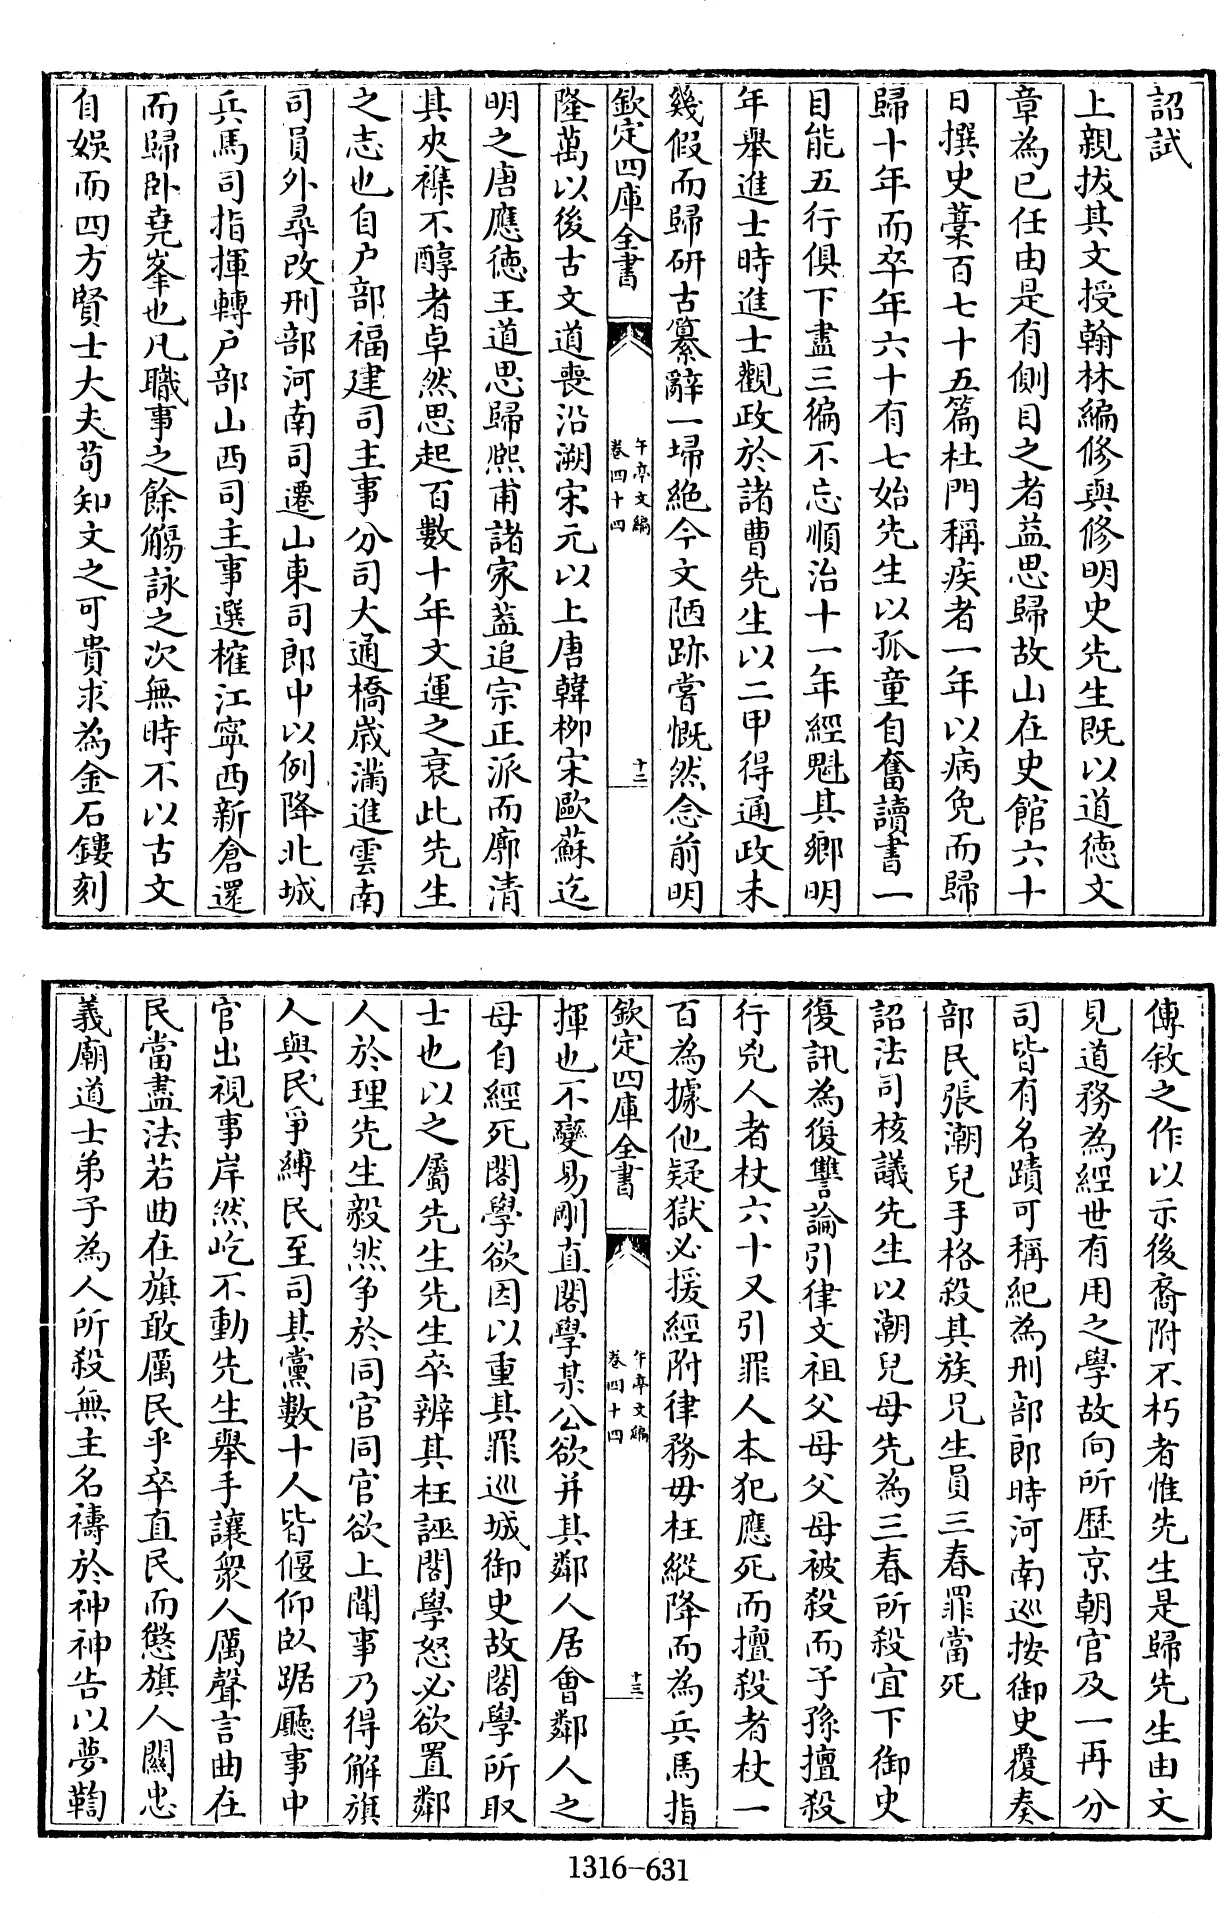 詔試
上親拔其文授翰林編修與修明史先生既以道德文
章為已任由是有側目之者益思歸故山在史館六十
日撰史藁百七十五篇杜門稱疾者一年以病免而歸
歸十年而卒年六十有七始先生以孤童自奮讀書一
目能五行俱下盡三徧不忘順治十一年經魁其鄉明
年舉進士時進士觀政於諸曹先生以二甲得通政未
幾假而歸研古纂辭一埽絶今文陋跡嘗慨然念前明
欽定四庫全書
午亭文編
卷四十四
十二
隆萬以後古文道喪沿溯宋元以上唐韓柳宋歐蘇迄
明之唐應德王道思歸熙甫諸家蓋追宗正派而廓清
其夾襍不醇者卓然思起百數十年文運之衰此先生
之志也自户部福建司主事分司大通橋嵗滿進雲南
司員外尋改刑部河南司遷山東司郎中以例降北城
兵馬司指揮轉户部山西司主事選榷江寧西新倉還
而歸卧堯峯也凡職事之餘觴詠之次無時不以古文
自娛而四方賢士大夫苟知文之可貴求為金石鏤刻
傳敘之作以示後裔附不朽者惟先生是歸先生由文
見道務為經世有用之學故向所歷京朝官及一再分
司皆有名蹟可稱紀為刑部郎時河南巡按御史覆奏
部民張潮兒手格殺其族兄生員三春罪當死
詔法司核議先生以潮兒母先為三春所殺宜下御史
復訊為復讐論引律文祖父母父母被殺而子孫擅殺
行兇人者杖六十又引罪人本犯應死而擅殺者杖一
百為據他疑獄必援經附律務毋枉縱降而為兵馬指
欽定四庫全書
午亭文編
卷四十四
十三
揮也不變易剛直閣學某公欲并其鄰人居會鄰人之
母自經死閣學欲因以重其罪巡城御史故閣學所取
士也以之屬先生先生卒辨其枉誣閣學怒必欲置鄰
人於理先生毅然争於同官同官欲上聞事乃得解旗
人與民爭縛民至司其黨數十人皆偃仰臥踞廳事中
官出視事岸然屹不動先生舉手讓衆人厲聲言曲在
民當盡法若曲在旗敢厲民乎卒直民而懲旗人闗忠
義廟道士弟子為人所殺無主名禱於神神告以夢鞫
1316-631